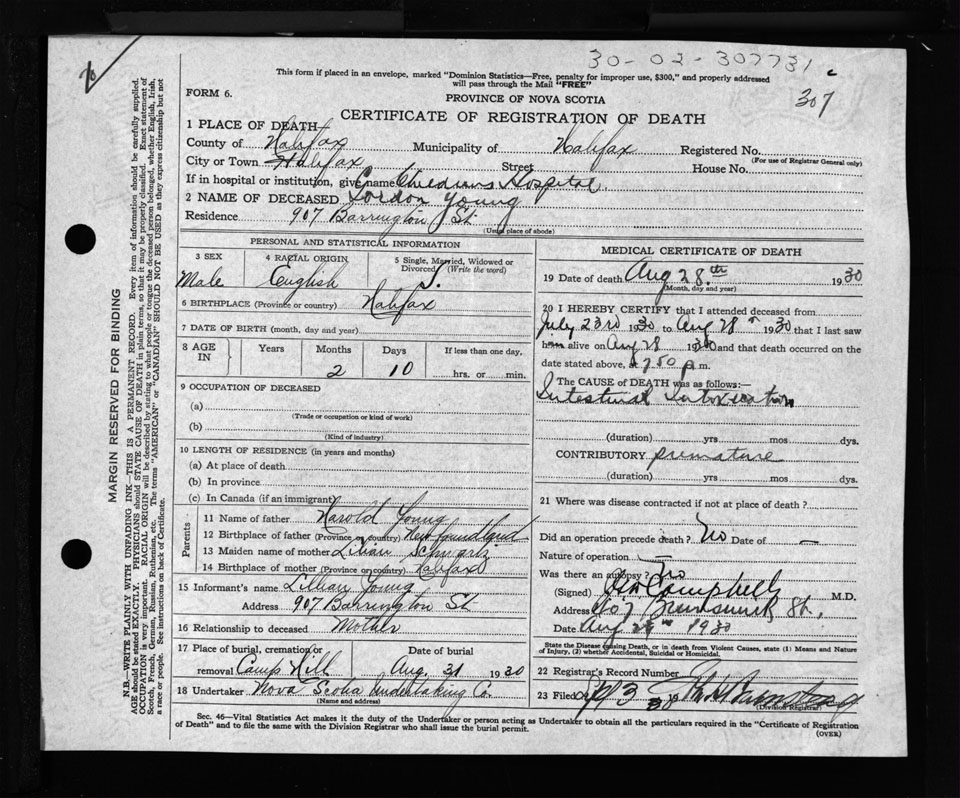 30-02-307731
307
This form if placed in an envelope, marked "Dominion Statistics—Free, penalty for improper use, $300," and properly addressed
will pass through the Mail "FREE"
FORM 6.
PROVINCE OF NOVA SCOTIA
CERTIFICATE OF REGISTRATION OF DEATH
1 PLACE OF DEATH
County of Halifax Municipality of Halifax Registered No.
(For use of Registrar General only)
City or Town Halifax Street House No.
If in hospital or institution, give name Childrens Hospital
2 NAME OF DECEASED Gordon Young
Residence 907 Barrington St
(Usual place of abode)
PERSONAL AND STATISTICAL INFORMATION
3 SEX 4 RACIAL ORIGIN 5 Single, Married, Widowed or
Divorced (Write the word)
Male English S.
6 BIRTHPLACE (Province or country) Halifax
7 DATE OF BIRTH (month, day and year)
8 AGE IN Years Months Days If less than one day,
2 10 hrs. or min.
9 OCCUPATION OF DECEASED
(a)
(Trade or occupation or kind of work)
(b)
(Kind of industry)
10 LENGTH OF RESIDENCE (in years and months)
(a) At place of death
(b) In province
(c) In Canada (if an immigrant)
Parents
11 Name of father Harold Young
12 Birthplace of father (Province or country) Newfoundland
13 Maiden name of mother Lilian Schwartz
14 Birthplace of mother (Province or country) Halifax
15 Informant's name Lillian Young
Address 907 Barrington St
16 Relationship to deceased Mother
17 Place of burial, cremation or Date of burial
removal Camp Hill Aug. 31 1930
18 Undertaker Nova Scotia Undertaking Co.
(Name and address)
MEDICAL CERTIFICATE OF DEATH
19 Date of death Aug 28th 1930
(Month, day and year)
20 I HEREBY CERTIFY that I attended deceased from
July 23rd 1930 to Aug 28th 1930 that I last saw
him alive on Aug 28 1930 and that death occurred on the
date stated above, at 7.50 p.m.
The CAUSE OF DEATH was as follows:—
Intestinal Intoxication
(duration) yrs mos dys.
CONTRIBUTORY premature
(duration) yrs mos dys.
21 Where was disease contracted if not at place of death?
Did an operation precede death? No Date of —
Nature of operation —
Was there an autopsy? No
(Signed) Campbell M.D.
Address 407 Brunswick St.,
Date Aug 28th 1930
State the Disease causing Death, or in death from Violent Causes, state (1) Means and Nature
of Injury, (2) whether Accidental, Suicidal or Homicidal.
22 Registrar's Record Number
23 Filed Sept 3 1930
(Division Registrar)
Sec. 46—Vital Statistics Act makes it the duty of the Undertaker or person acting as Undertaker to obtain all the particulars required in the "Certificate of Registration
of Death" and to file the same with the Division Registrar who shall issue the burial permit.
(OVER)
MARGIN RESERVED FOR BINDING
N.B.—WRITE PLAINLY WITH UNFADING INK—THIS IS A PERMANENT RECORD. Every item of information should be carefully supplied.
AGE should be stated EXACTLY. PHYSICIANS should STATE CAUSE OF DEATH in plain terms, so that it may be properly classified. Exact statement of
OCCUPATION is very important. RACIAL ORIGIN will be described by stating to what people or tongue the deceased person belonged, whether English, Irish,
Scotch, French, German, Russian, Ruthenian, etc. The terms "AMERICAN" or "CANADIAN" SHOULD NOT BE USED as they express citizenship but not
a race or people. See instructions on back of Certificate.